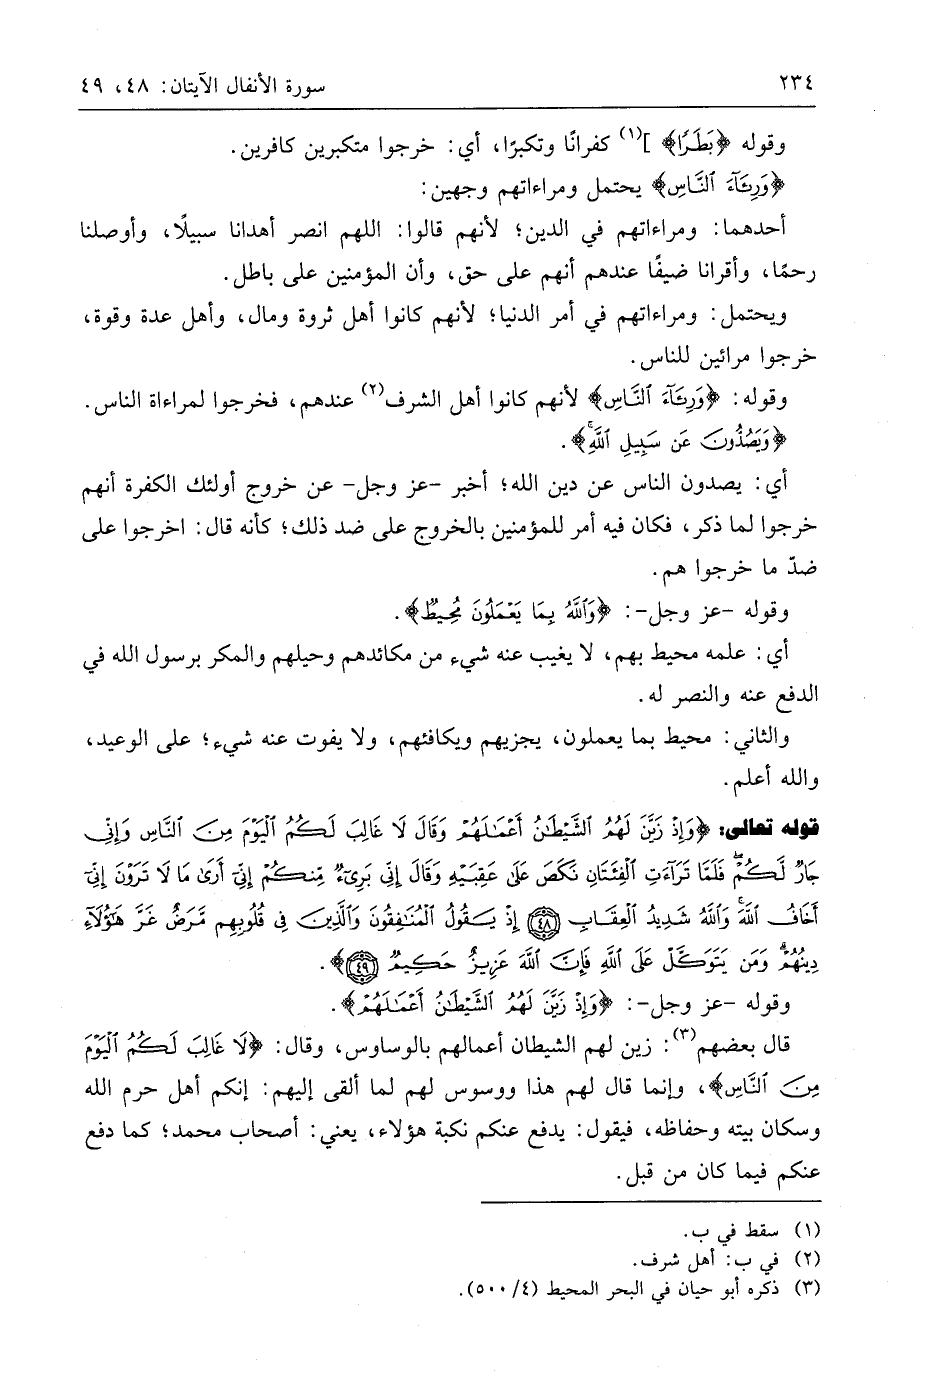 ٢٣٤ سورة الأنفال الآيتان: ٤٨، ٤٩
وقوله ﴿بَطَرًا﴾ ](١) كفرانًا وتكبرًا، أي: خرجوا متكبرين كافرين.
﴿وَرِئَآءَ ٱلنَّاسِ﴾ يحتمل ومراءاتهم وجهين:
أحدهما: ومراءاتهم في الدين؛ لأنهم قالوا: اللهم انصر أهدانا سبيلًا، وأوصلنا
رحمًا، وأقرانا ضيفًا عندهم أنهم على حق، وأن المؤمنين على باطل.
ويحتمل: ومراءاتهم في أمر الدنيا؛ لأنهم كانوا أهل ثروة ومال، وأهل عدة وقوة،
خرجوا مرائين للناس.
وقوله: ﴿وَرِئَآءَ ٱلنَّاسِ﴾ لأنهم كانوا أهل الشرف(٢) عندهم، فخرجوا لمراءاة الناس.
﴿وَيَصُدُّونَ عَن سَبِيلِ ٱللَّهِۚ﴾.
أي: يصدون الناس عن دين الله؛ أخبر -عز وجل- عن خروج أولئك الكفرة أنهم
خرجوا لما ذكر، فكان فيه أمر للمؤمنين بالخروج على ضد ذلك؛ كأنه قال: اخرجوا على
ضدّ ما خرجوا هم.
وقوله -عز وجل-: ﴿وَٱللَّهُ بِمَا يَعْمَلُونَ مُحِيطٌ﴾.
أي: علمه محيط بهم، لا يغيب عنه شيء من مكائدهم وحيلهم والمكر برسول الله في
الدفع عنه والنصر له.
والثاني: محيط بما يعملون، يجزيهم ويكافئهم، ولا يفوت عنه شيء؛ على الوعيد،
والله أعلم.
قوله تعالى: ﴿وَإِذْ زَيَّنَ لَهُمُ ٱلشَّيْطَٰنُ أَعْمَٰلَهُمْ وَقَالَ لَا غَالِبَ لَكُمُ ٱلْيَوْمَ مِنَ ٱلنَّاسِ وَإِنِّى
جَارٌ لَّكُمْۖ فَلَمَّا تَرَآءَتِ ٱلْفِئَتَانِ نَكَصَ عَلَىٰ عَقِبَيْهِ وَقَالَ إِنِّى بَرِىٓءٌ مِّنكُمْ إِنِّىٓ أَرَىٰ مَا لَا تَرَوْنَ إِنِّىٓ
أَخَافُ ٱللَّهَۚ وَٱللَّهُ شَدِيدُ ٱلْعِقَابِ ﴿٤٨﴾ إِذْ يَقُولُ ٱلْمُنَٰفِقُونَ وَٱلَّذِينَ فِى قُلُوبِهِم مَّرَضٌ غَرَّ هَٰٓؤُلَآءِ
دِينُهُمْۗ وَمَن يَتَوَكَّلْ عَلَى ٱللَّهِ فَإِنَّ ٱللَّهَ عَزِيزٌ حَكِيمٌ ﴿٤٩﴾﴾.
وقوله -عز وجل-: ﴿وَإِذْ زَيَّنَ لَهُمُ ٱلشَّيْطَٰنُ أَعْمَٰلَهُمْ﴾.
قال بعضهم(٣): زين لهم الشيطان أعمالهم بالوساوس، وقال: ﴿لَا غَالِبَ لَكُمُ ٱلْيَوْمَ
مِنَ ٱلنَّاسِ﴾، وإنما قال لهم هذا ووسوس لهم لما ألقى إليهم: إنكم أهل حرم الله
وسكان بيته وحفاظه، فيقول: يدفع عنكم نكبة هؤلاء، يعني: أصحاب محمد؛ كما دفع
عنكم فيما كان من قبل.
(١) سقط في ب.
(٢) في ب: أهل شرف.
(٣) ذكره أبو حيان في البحر المحيط (٤/ ٥٠٠).